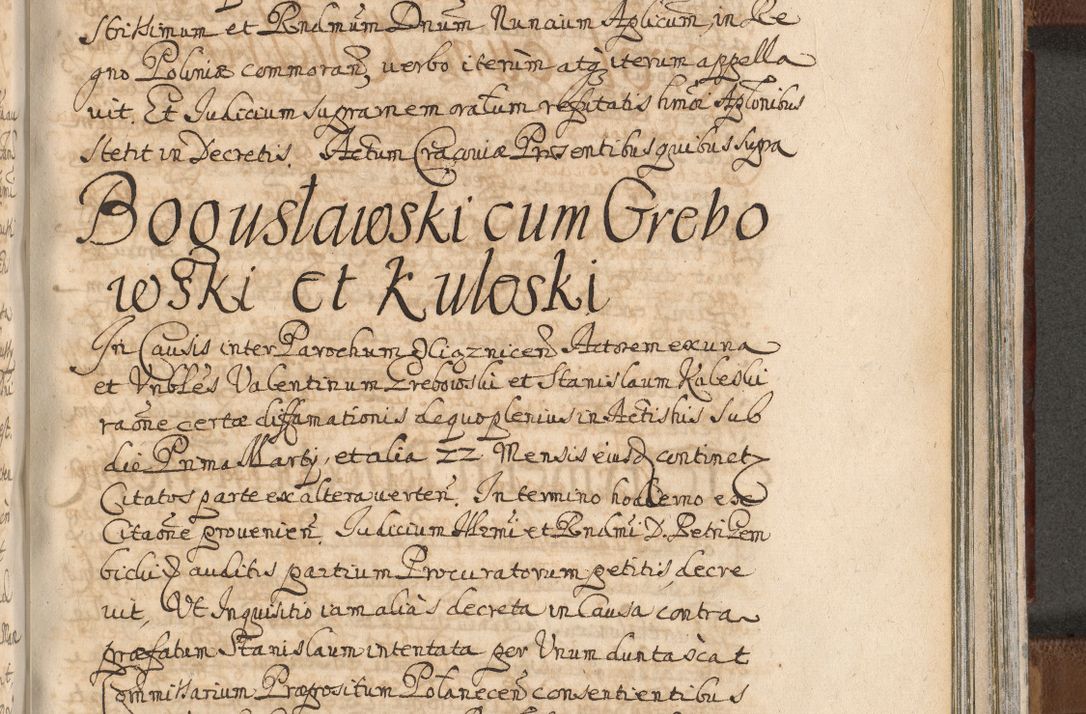 strissimum et Rndmum Dnum Nuncium Aplicum in Re
gno Poloniæ commoran̄, verbo iterum atq; iterum appella
vit. Et Iudicium supramemoratum refutatis hmōi Aplōnibus
stetit in Decretis. Actum Cracoviæ Præsentibus quibus supra
Bogusławski cum Grebo
wski et Kuleski
In Causis inter Parochum Actorem ex una
et Vnbles Valentinum Grebowski et Stanislaum Kaleski
raōne certæ diffamationis de quo plenius in Actis his sub
die Prima Martÿ, et alia 22 Mensis eiusd continet
Citatos parte ex altera verten̄. In termino hodierno exe
Citaōne provenien̄. Iudicium Illrmi et Rndmi D. Petri Gem
bicki auditis partium Procuratorum petitis, decre
vit, Vt Inquisitio iam aliàs decreta in Causa contra
præfatum Stanislaum intentata per Vnum duntaxàt
Commissarium Præpositum Polanecen̄ consentientibus